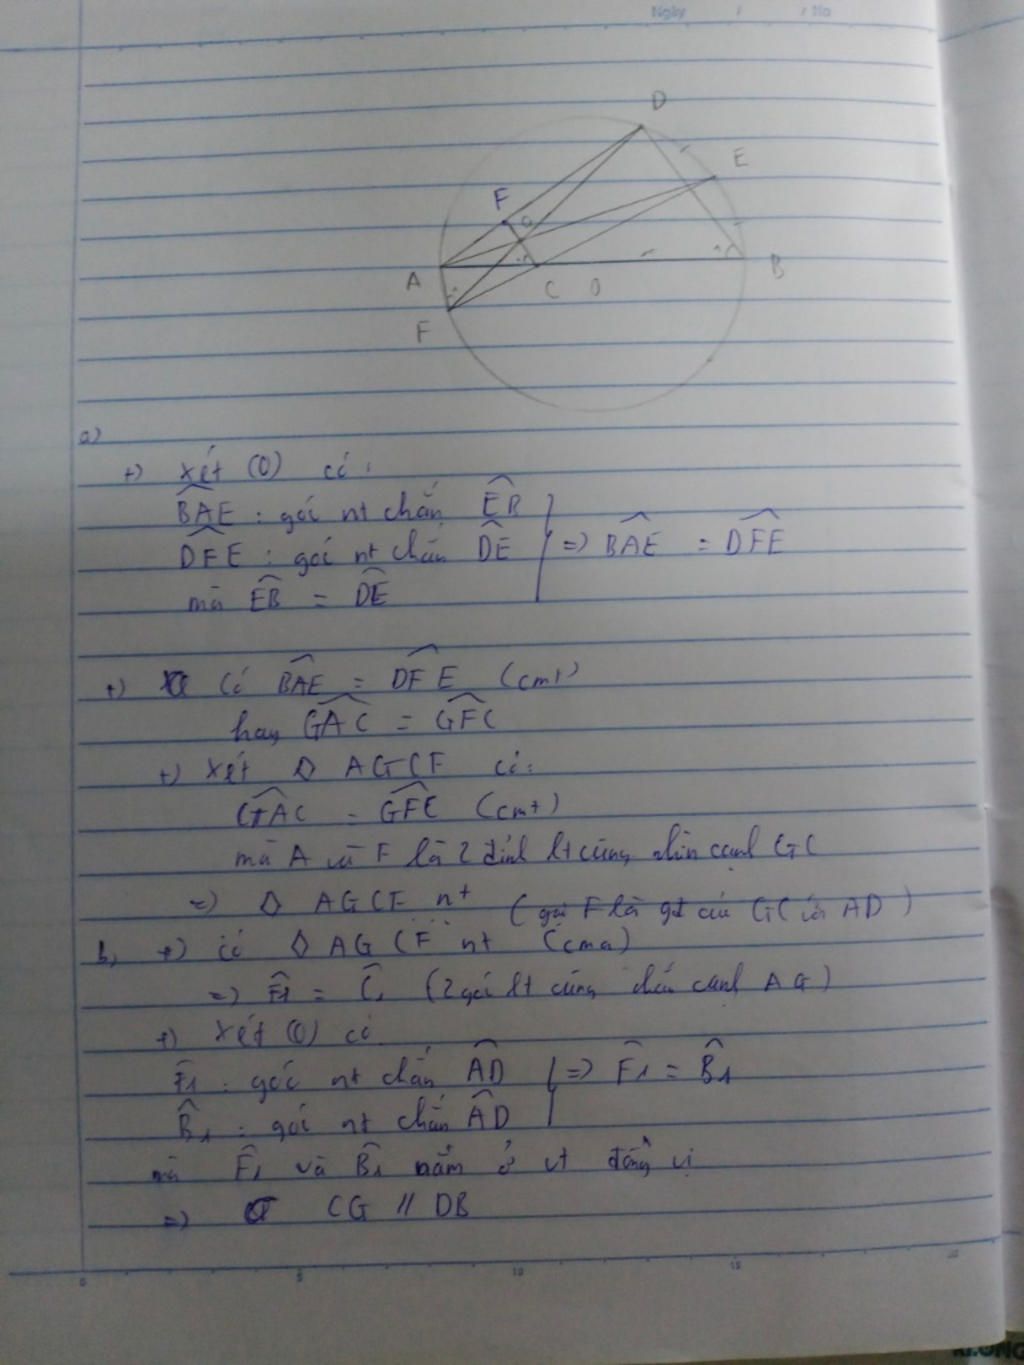 Ngày / / No
D
E
F
G
A
C
O
B
F
a)
+) Xét (O) có:
BAE : góc nt chắn EB
DFE : góc nt chắn DE => BAE = DFE
mà EB = DE
+) Có BAE = DFE (cmt)
hay GAC = GFC
+) Xét ◊ AGCF có:
GAC = GFC (cmt)
mà A và F là 2 đỉnh lt cùng nhìn cạnh GC
=> ◊ AGCF nt (gọi F là gđ của GC và AD)
b, +) có ◊ AGCF nt (cma)
=> F1 = C1 (2 góc lt cùng chắn cạnh AG)
+) Xét (O) có
F1 : góc nt chắn AD => F1 = B1
B1 : góc nt chắn AD
mà F1 và B1 nằm ở vt đồng vị
=> CG // DB
0 5 10 15 20